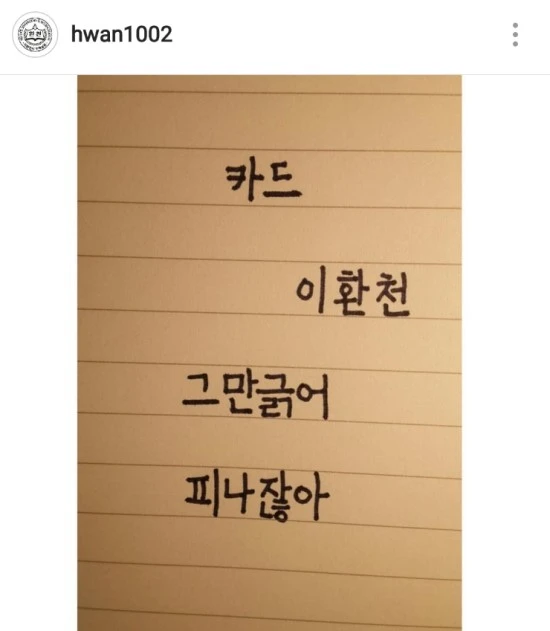 hwan1002
카드
이환천
그만긁어
피나잖아